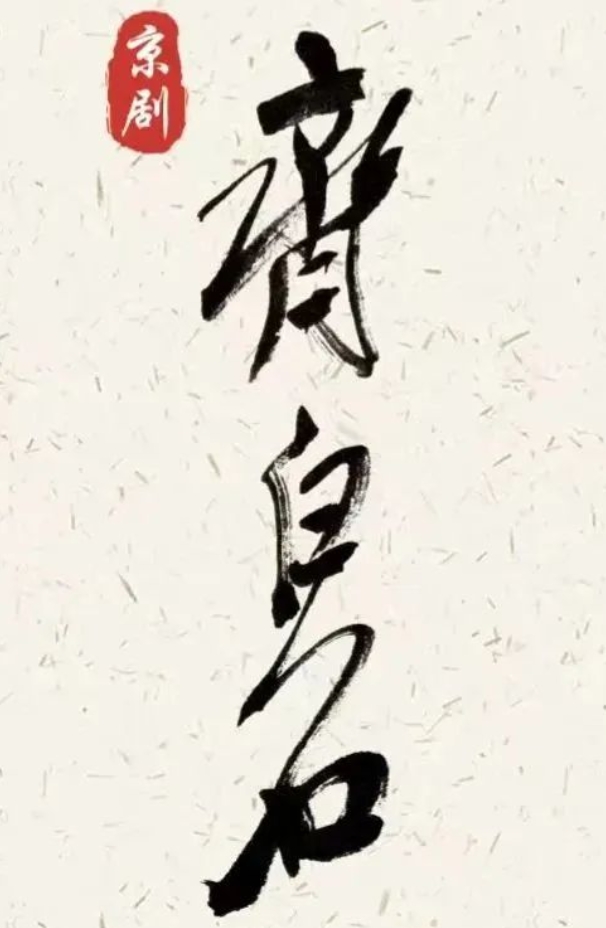 京剧
齊白石